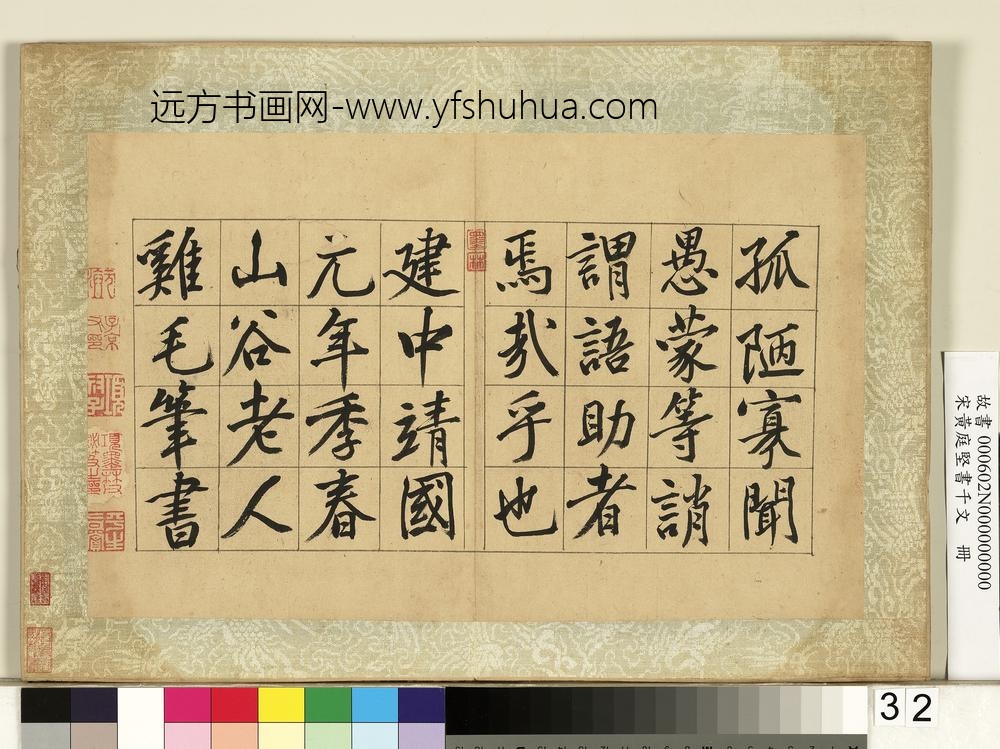 远方书画网-www.yfshuhua.com
孤陋寡聞
愚蒙等誚
謂語助者
焉哉乎也
建中靖國
元年季春
山谷老人
雞毛筆書
故書 000602N000000000
宋黃庭堅書千文 冊
32